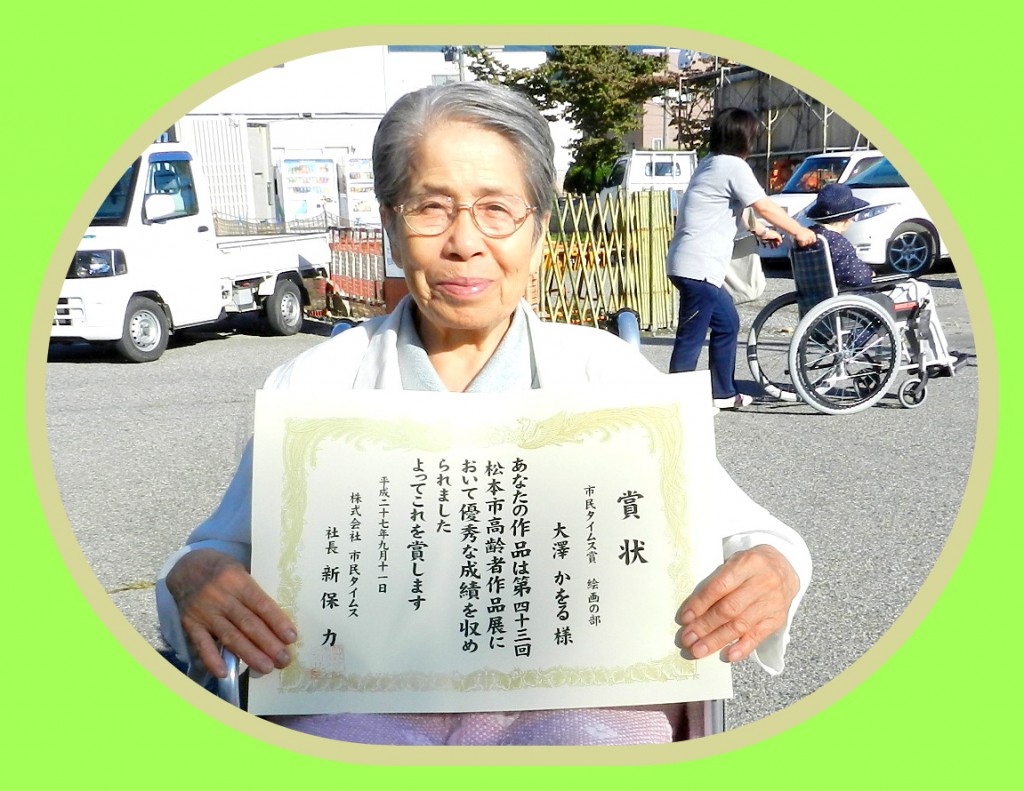 賞状
市民タイムス賞 絵画の部
大澤 かをる 様
あなたの作品は第四十三回
松本市高齢者作品展に
おいて優秀な成績を収め
られました
よってこれを賞します
平成二十七年九月十一日
株式会社 市民タイムス
社長 新保 力